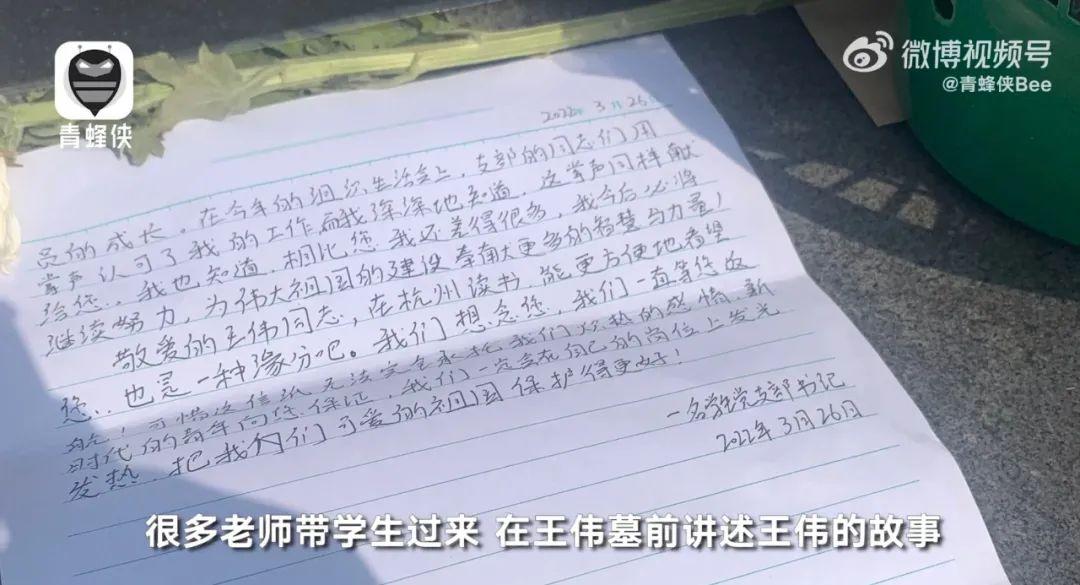 青蜂侠
微博视频号
@青蜂侠Bee
2022年 3月26日
员的成长。在今年的组织生活会上，支部的同志们用
掌声认可了我的工作，而我深深地知道，这掌声同样献
给您，我也知道，相比您，我还差得很多，我今后必将
继续努力，为伟大祖国的建设奉献更多的智慧与力量！
敬爱的王伟同志，在杭州读书，能更方便地看望
您，也是一种缘分吧。我们想念您，我们一直等您返
航！可惜这信纸无法完全承托我们炽热的感情，新
时代的青年向您保证，我们一定会在自己的岗位上发光
发热，把我们可爱的祖国保护得更好！
一名学生党支部书记
2022年3月26日
很多老师带学生过来 在王伟墓前讲述王伟的故事